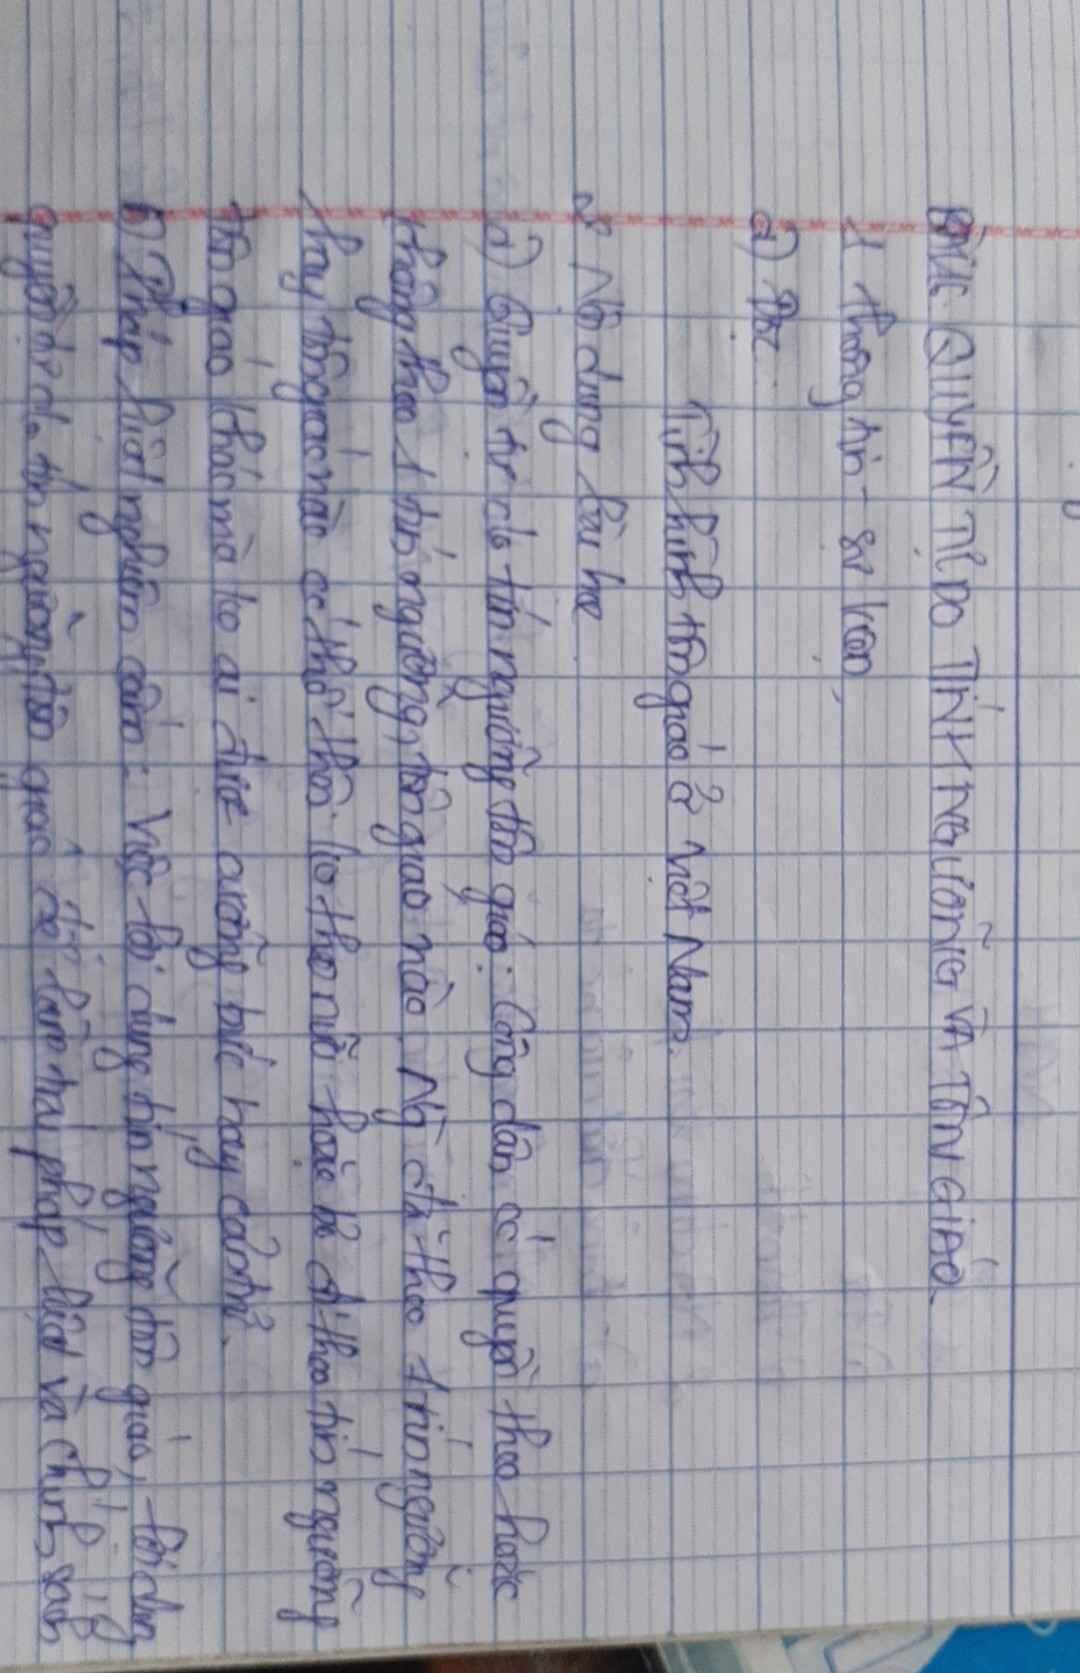 BÀI 16 QUYỀN TỰ DO TÍN NGƯỠNG VÀ TÔN GIÁO
1 Thông tin - sự kiện
a) Đọc
Tình hình tôn giáo ở Việt Nam.
2 Nội dung bài học
a) Quyền tự do tín ngưỡng tôn giáo: Công dân có quyền theo hoặc
không theo 1 tín ngưỡng, tôn giáo nào. Ng đã theo 1 tín ngưỡng
hay tôn giáo nào có thể thôi ko theo nữa hoặc bỏ đi theo tín ngưỡng
tôn giáo khác mà ko ai được cưỡng bức hay cản trở.
b) Pháp luật nghiêm cấm: Việc lợi dụng tín ngưỡng tôn giáo, lợi dụng
quyền tự do tín ngưỡng, tôn giáo để làm trái pháp luật và chính sách